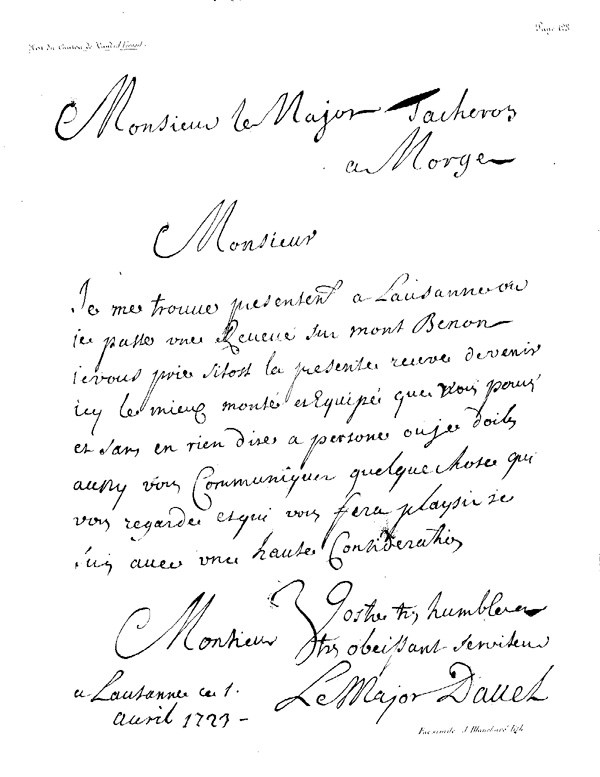 Page 123.
Hist. du Canton de Vaud
Monsieur le Major Tacheron
a Morge
Monsieur
Je me trouue presentemt a Lausanne ou
ie passe vne Reueüe sur mont Benon
ie vous prie sitost la presente receue de venir
icy le mieux monté et Equipé que vous pouré
et sans en rien dire a persone ou je doibs
aussy vous Communiquer quelque chose qui
vous regarde et qui vous fera playsir ie
suis auec vne haute Consideration
Monsieur
Vostre tres humble et
tres obeissant seruiteur
a Lausanne ce 1.
auril 1723 -
Le Major Dauel
Facsimile J. lith.